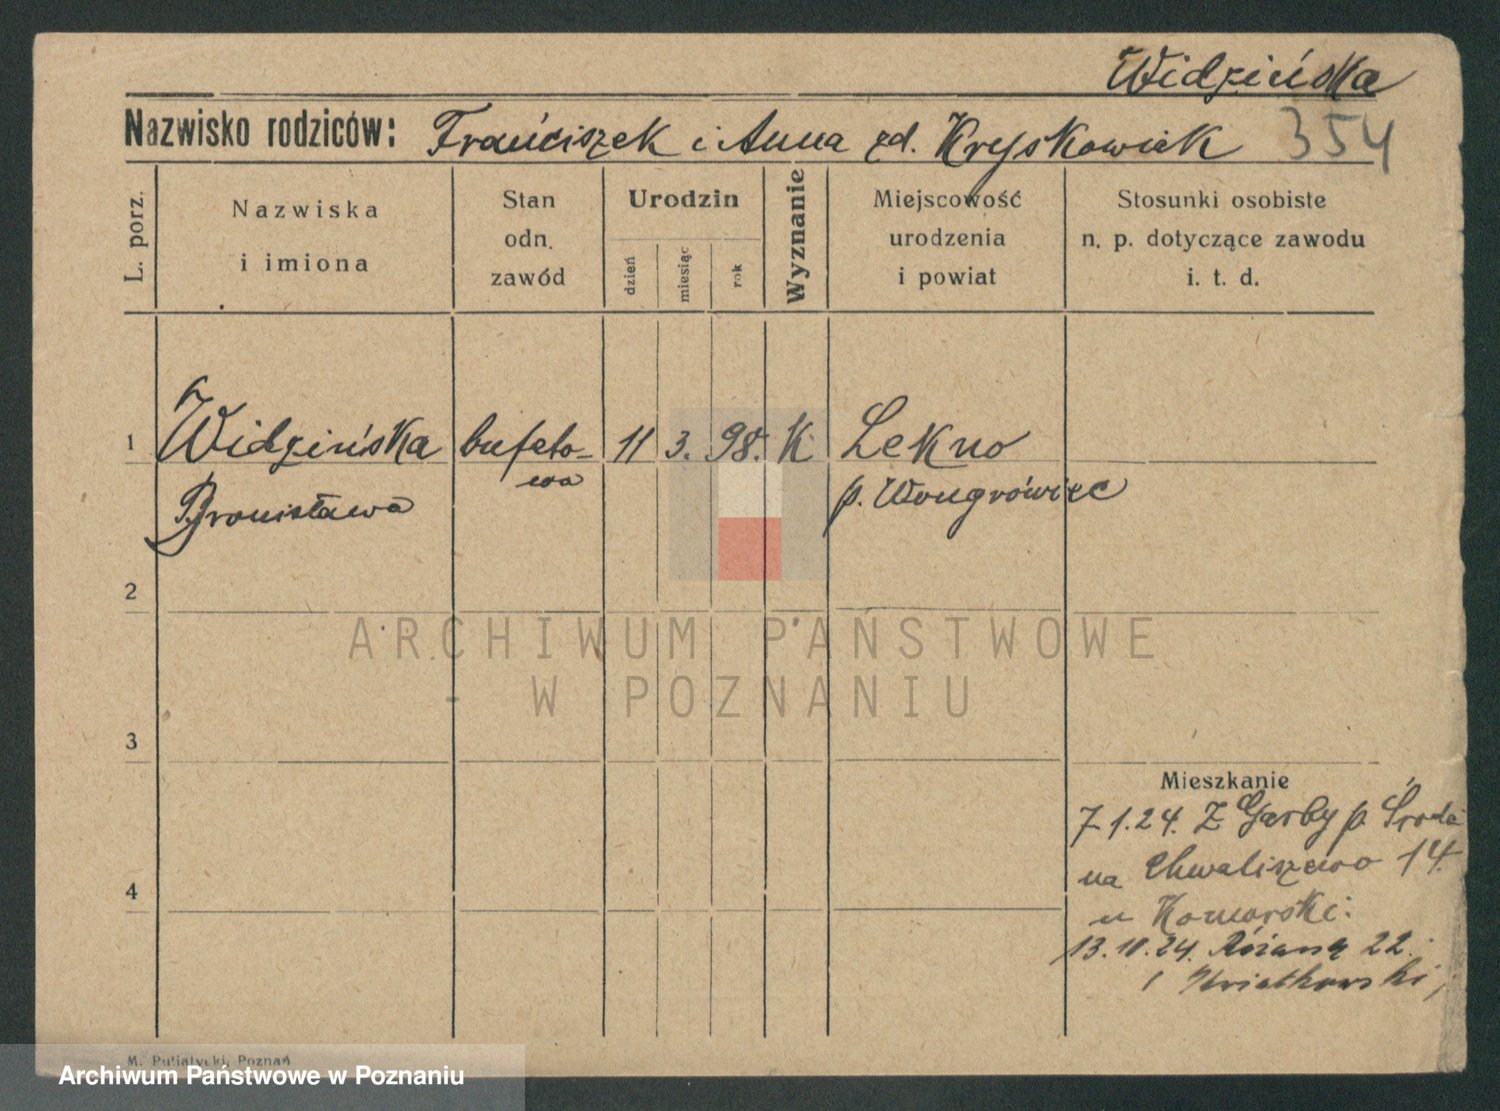 Widzińska
Nazwisko rodziców: Franciszek i Anna zd. Kryskowiak 354
L. porz.
Nazwiska
i imiona
Stan
odn.
zawód
Urodzin
dzień
miesiąc
rok
Wyznanie
Miejscowość
urodzenia
i powiat
Stosunki osobiste
n. p. dotyczące zawodu
i. t. d.
1 Widzińska bufeto- 11 3. 98. K Lekno
wa
Bronisława p. Wongrówiec
2
ARCHIWUM PAŃSTWOWE
W POZNANIU
3
Mieszkanie
7.1.24. Z Garby p. Środa
na Chwaliszewo 14.
4
u Komorski.
13.11.24. Różana 22.
Kwiatkowski
M. Putiatycki, Poznań
Archiwum Państwowe w Poznaniu